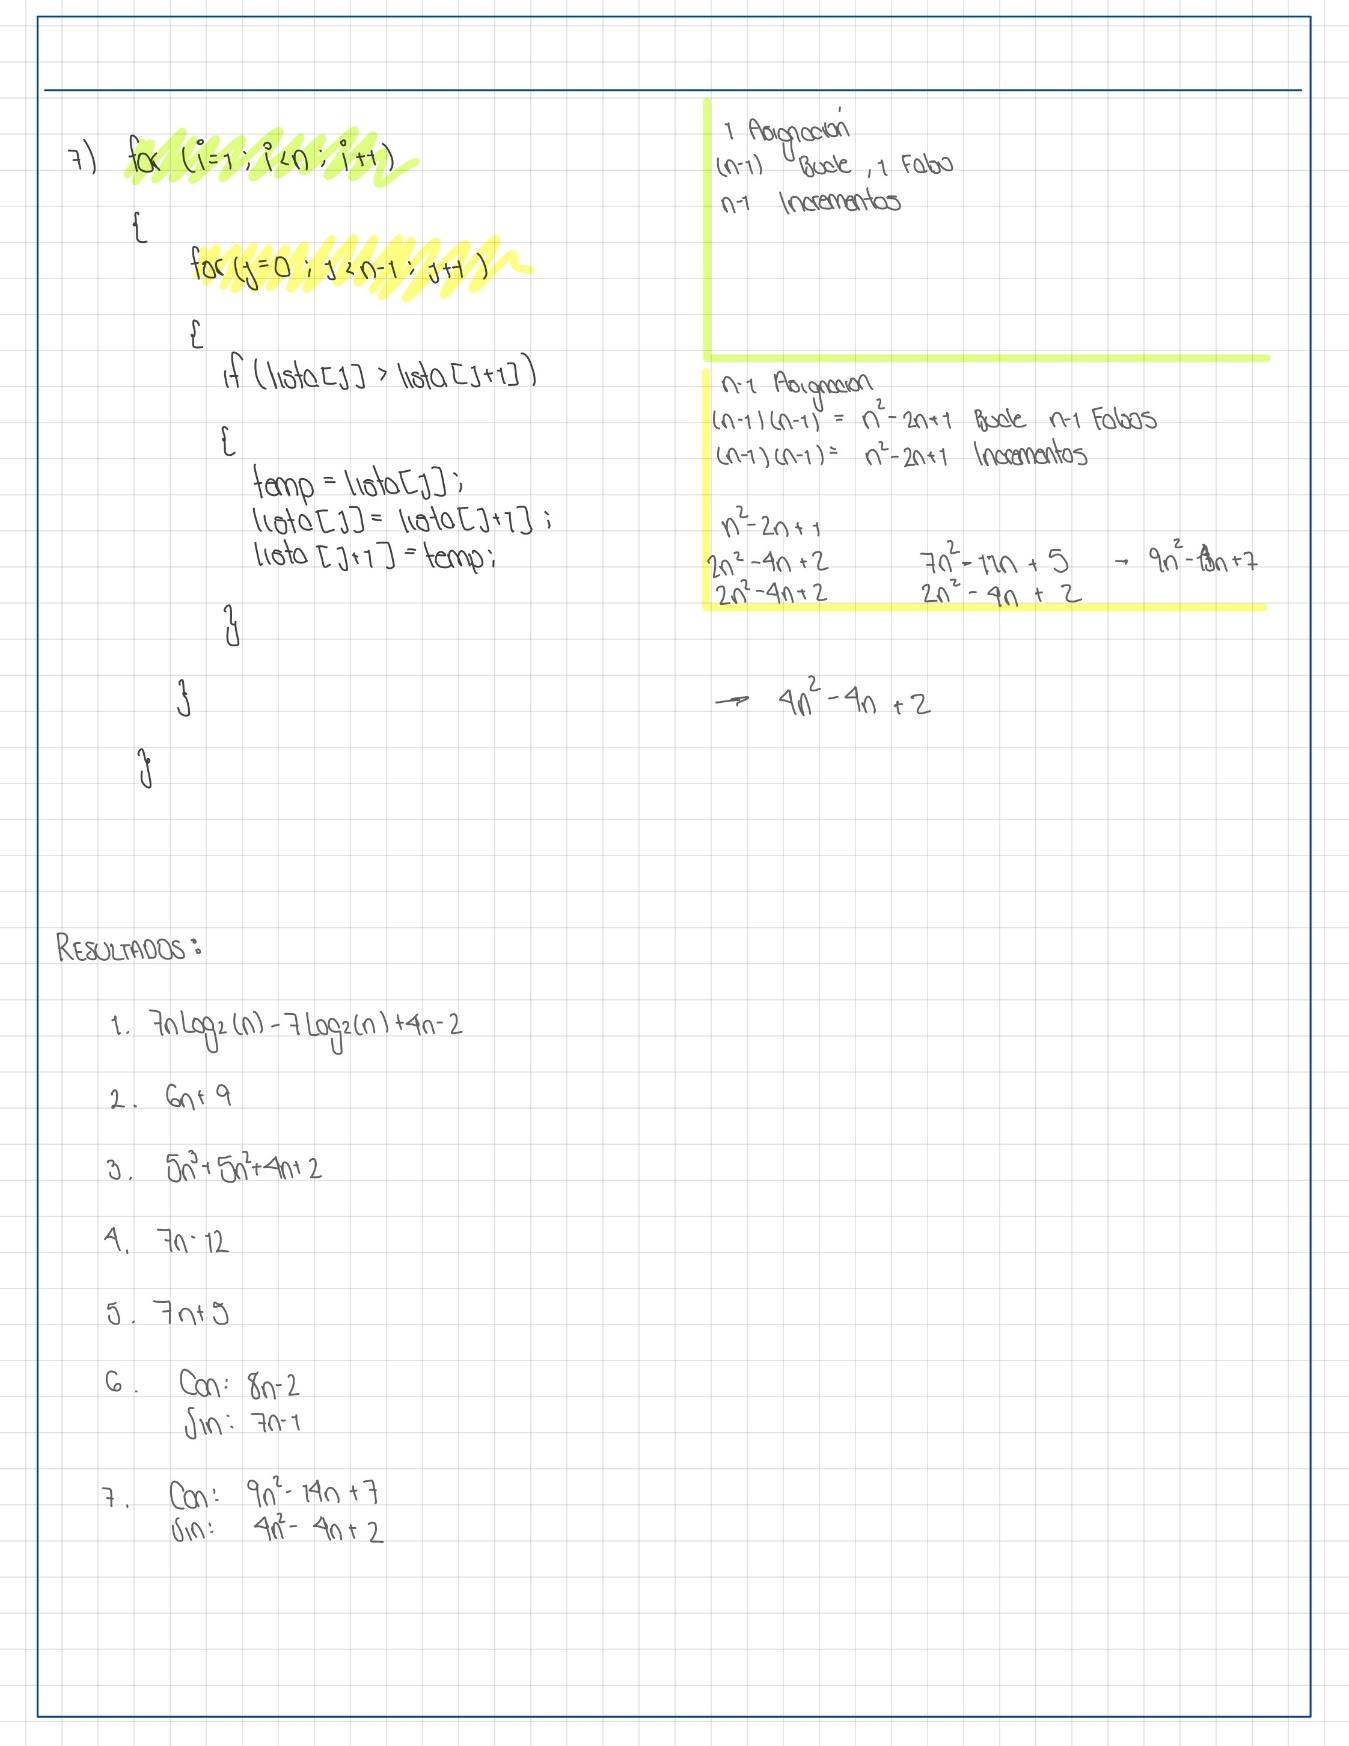 7) for (i=1; i<n; i++)
{
for (j=0; j<n-1; j++)
{
if (lista[j] > lista[j+1])
{
temp = lista[j];
lista[j] = lista[j+1];
lista[j+1] = temp;
}
}
}
1 Asignación
(n-1) Bucle, 1 Falso
n-1 Incrementos
n-1 Asignacion
(n-1)(n-1) = n²-2n+1 Bucle n-1 Falsos
(n-1)(n-1) = n²-2n+1 Incrementos
n²-2n+1
2n²-4n+2 7n²-11n+5 → 9n²-n+7
2n²-4n+2 2n²-4n+2
→ 4n²-4n+2
RESULTADOS:
1. 7nLog₂(n)-7Log₂(n)+4n-2
2. 6n+9
3. 5n³+5n²+4n+2
4. 7n-12
5. 7n+5
6. Con: 8n-2
Sin: 7n-1
7. Con: 9n²-14n+7
Sin: 4n²-4n+2